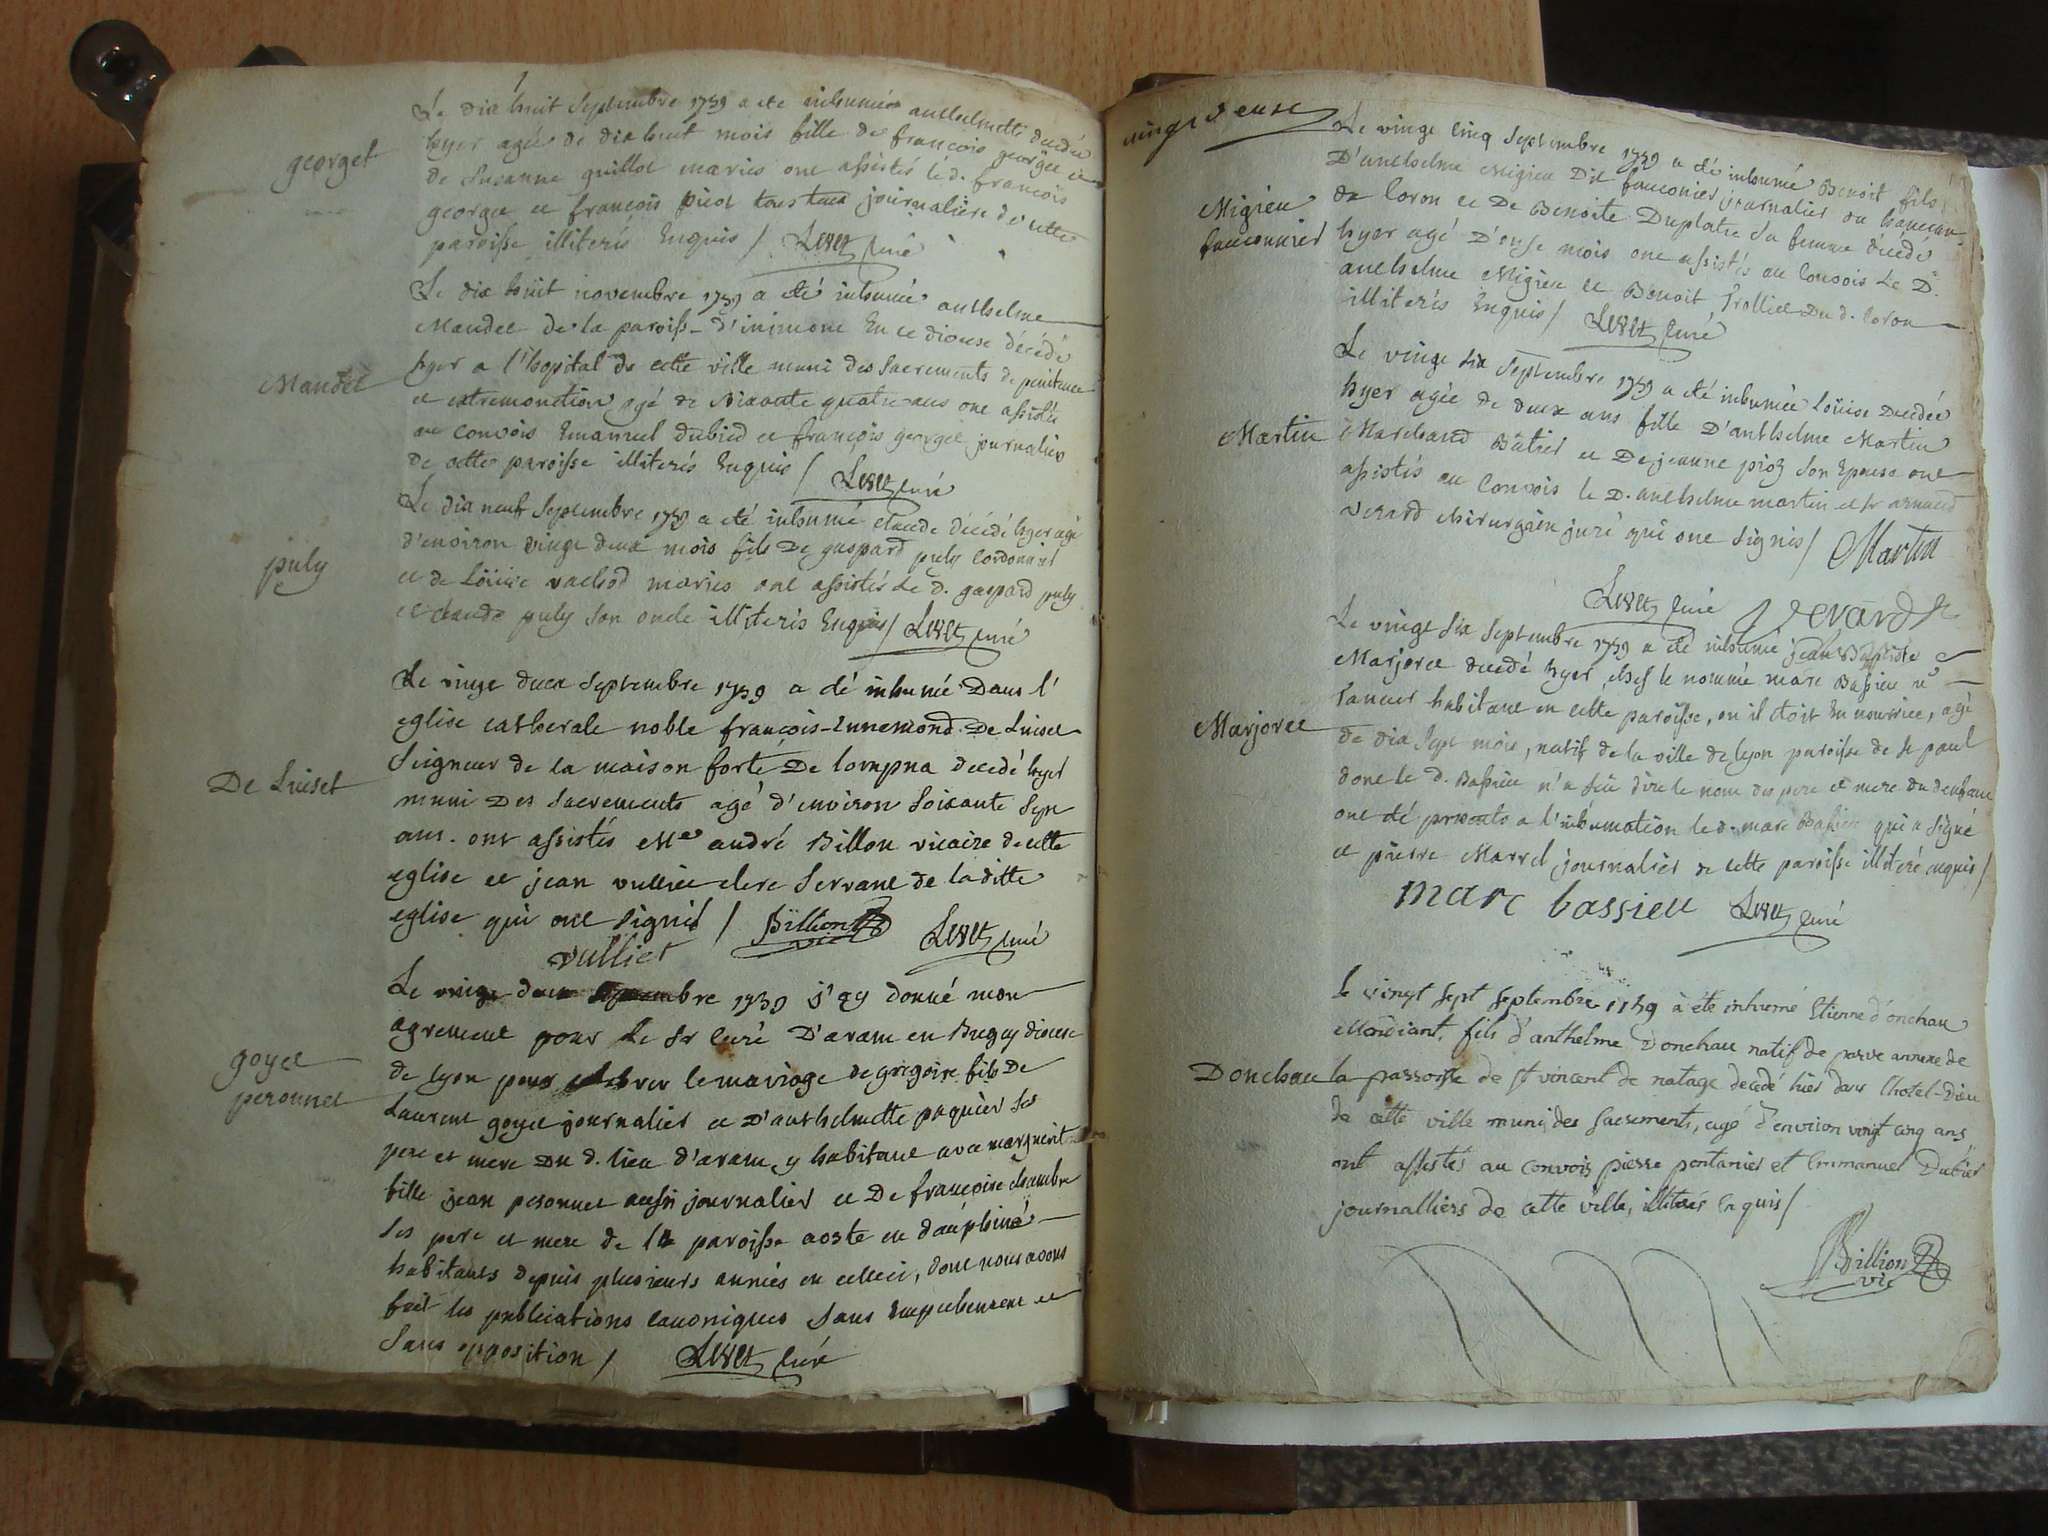 georget
Le dix huit septembre 1739 a ete inhumée anthelmette decedée
hyer agée de dix huit mois fille de françois georget et
de Susanne guillot mariés ont assistés le d. françois
georget et françois picot tous deux journaliers de cette
paroisse illiterés Enquis / curé
Mandet
Le dix huit novembre 1739 a eté inhumé anthelme
Mandet de la paroisse d'inimont En ce diocese décédé
hyer a l'hopital de cette ville muni des Sacrements de penitence
et extremonction agé de soixante quatre ans ont assistés
au convois Emanuel dubied et françois georget journalier
de cette paroisse illiterés Enquis / curé
puly
Le dix neuf Septembre 1739 a eté inhumé claude décédé hyer agé
d'environ vingt deux mois fils de gaspard puly cordonnier
et de Loüise vachod mariés ont assistés Le d. gaspard puly
et claude puly son oncle illiterés Enquis / curé
De Luiset
Le vingt deux Septembre 1739 a eté inhumé Dans l'
eglise catherale noble françois-Ennemond De Luiset
Seigneur de la maison forte De lompna decedé hyer
muni Des Sacrements agé d'environ Soixante Sept
ans. ont assistés Me andré Billon vicaire de cette
eglise et jean vulliet clerc Servant de la ditte
eglise qui ont signés / Billion vic curé
vulliet
goyet
peronnet
Le vingt deux Septembre 1739 j'ay donné mon
agrement pour le Sr curé D'aram en Bugey diocese
de lyon pour celebrer le mariage de gregoire fils De
Laurent goyet journalier et D'anthelmette paquier Ses
pere et mere Du d. lieu d'aram y habitant avec marguerite
fille jean peronnet aussi journalier et De françoise chambre
Ses pere et mere de la paroisse aoste en dauphiné
habitants depuis plusieurs années en celleci, dont nous avons
fait les publications canoniques Sans Empechement et
Sans opposition / curé
vingt deuse
Migieu
fauconnier
Le vingt cinq Septembre 1739 a eté inhumé Benoit fils
D'anthelme Migieu Dit fauconier journalier au hameau
de Coron et De Benoite Duplatre sa femme décédé
hyer agé D'onse mois ont assistés au Convois Le D.
anthelme Migieu et Benoit Trolliet Du d. Coron
illiterés Enquis / curé
Martin
Le vingt six Septembre 1739 a eté inhumée Loüise Decedée
hyer agée de deux ans fille D'anthelme Martin
Marchand Bâtier et De jeanne pioz son Epouse ont
assistés au Convois le D. anthelme martin et sr arnaud
verard chirurgien juré qui ont signés / Martin
curé Verard
Marjoret
Le vingt six Septembre 1739 a eté inhumé jean Baptiste
Marjoret decedé hyer chés le nommé marc Bassieu
habitant en cette paroisse, ou il étoit En nourrice, agé
de dix sept mois, natif de la ville de lyon paroisse de st paul
dont le d. Bassieu n'a sçu dire le nom des pere et mere du d enfant
ont eté presents a l'inhumation le d. marc Bassieu qui a signé
et pierre Marrel journalier de cette paroisse illiteré enquis /
marc bassieu curé
Donchau
le vingt sept septembre 1739 à été inhumé Etienne d'onchau
Mendiant, fils d'anthelme Donchau natif de parve annexe de
la parroisse de st vincent de natage decedé hier dans l'hotel-Dieu
de cette ville muni des Sacrements, agé d'environ vingt cinq ans
ont assistés au convois pierre pontanier et Emmanuel Dubied
journalliers de cette ville, illiterés Enquis /
Billion
vic